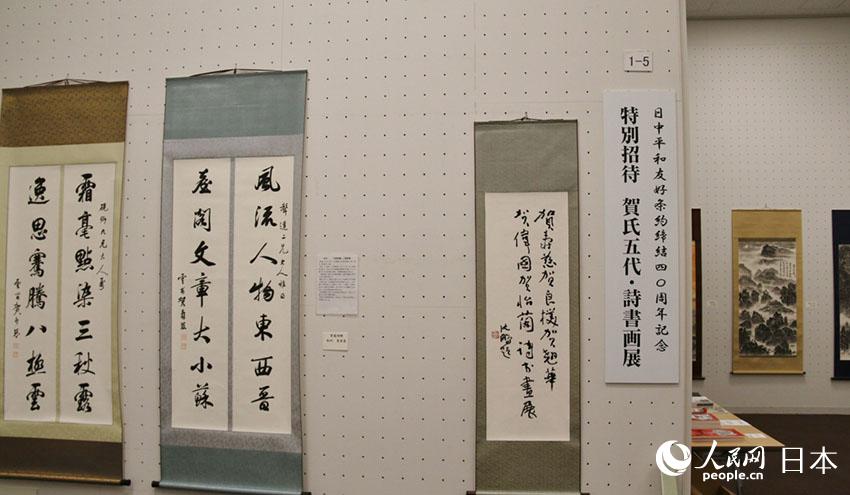 1-5
日中平和友好条約締結四〇周年記念
特別招待　賀氏五代・詩書画展
賀壽慈賀良樸賀翹華
賀偉國賀怡蘭詩書畫展
沈鵬題
風流人物東西晉
臺閣文章大小蘇
霜毫點染三秋露
逸思騫騰八極雲
人民网 日本
people.cn